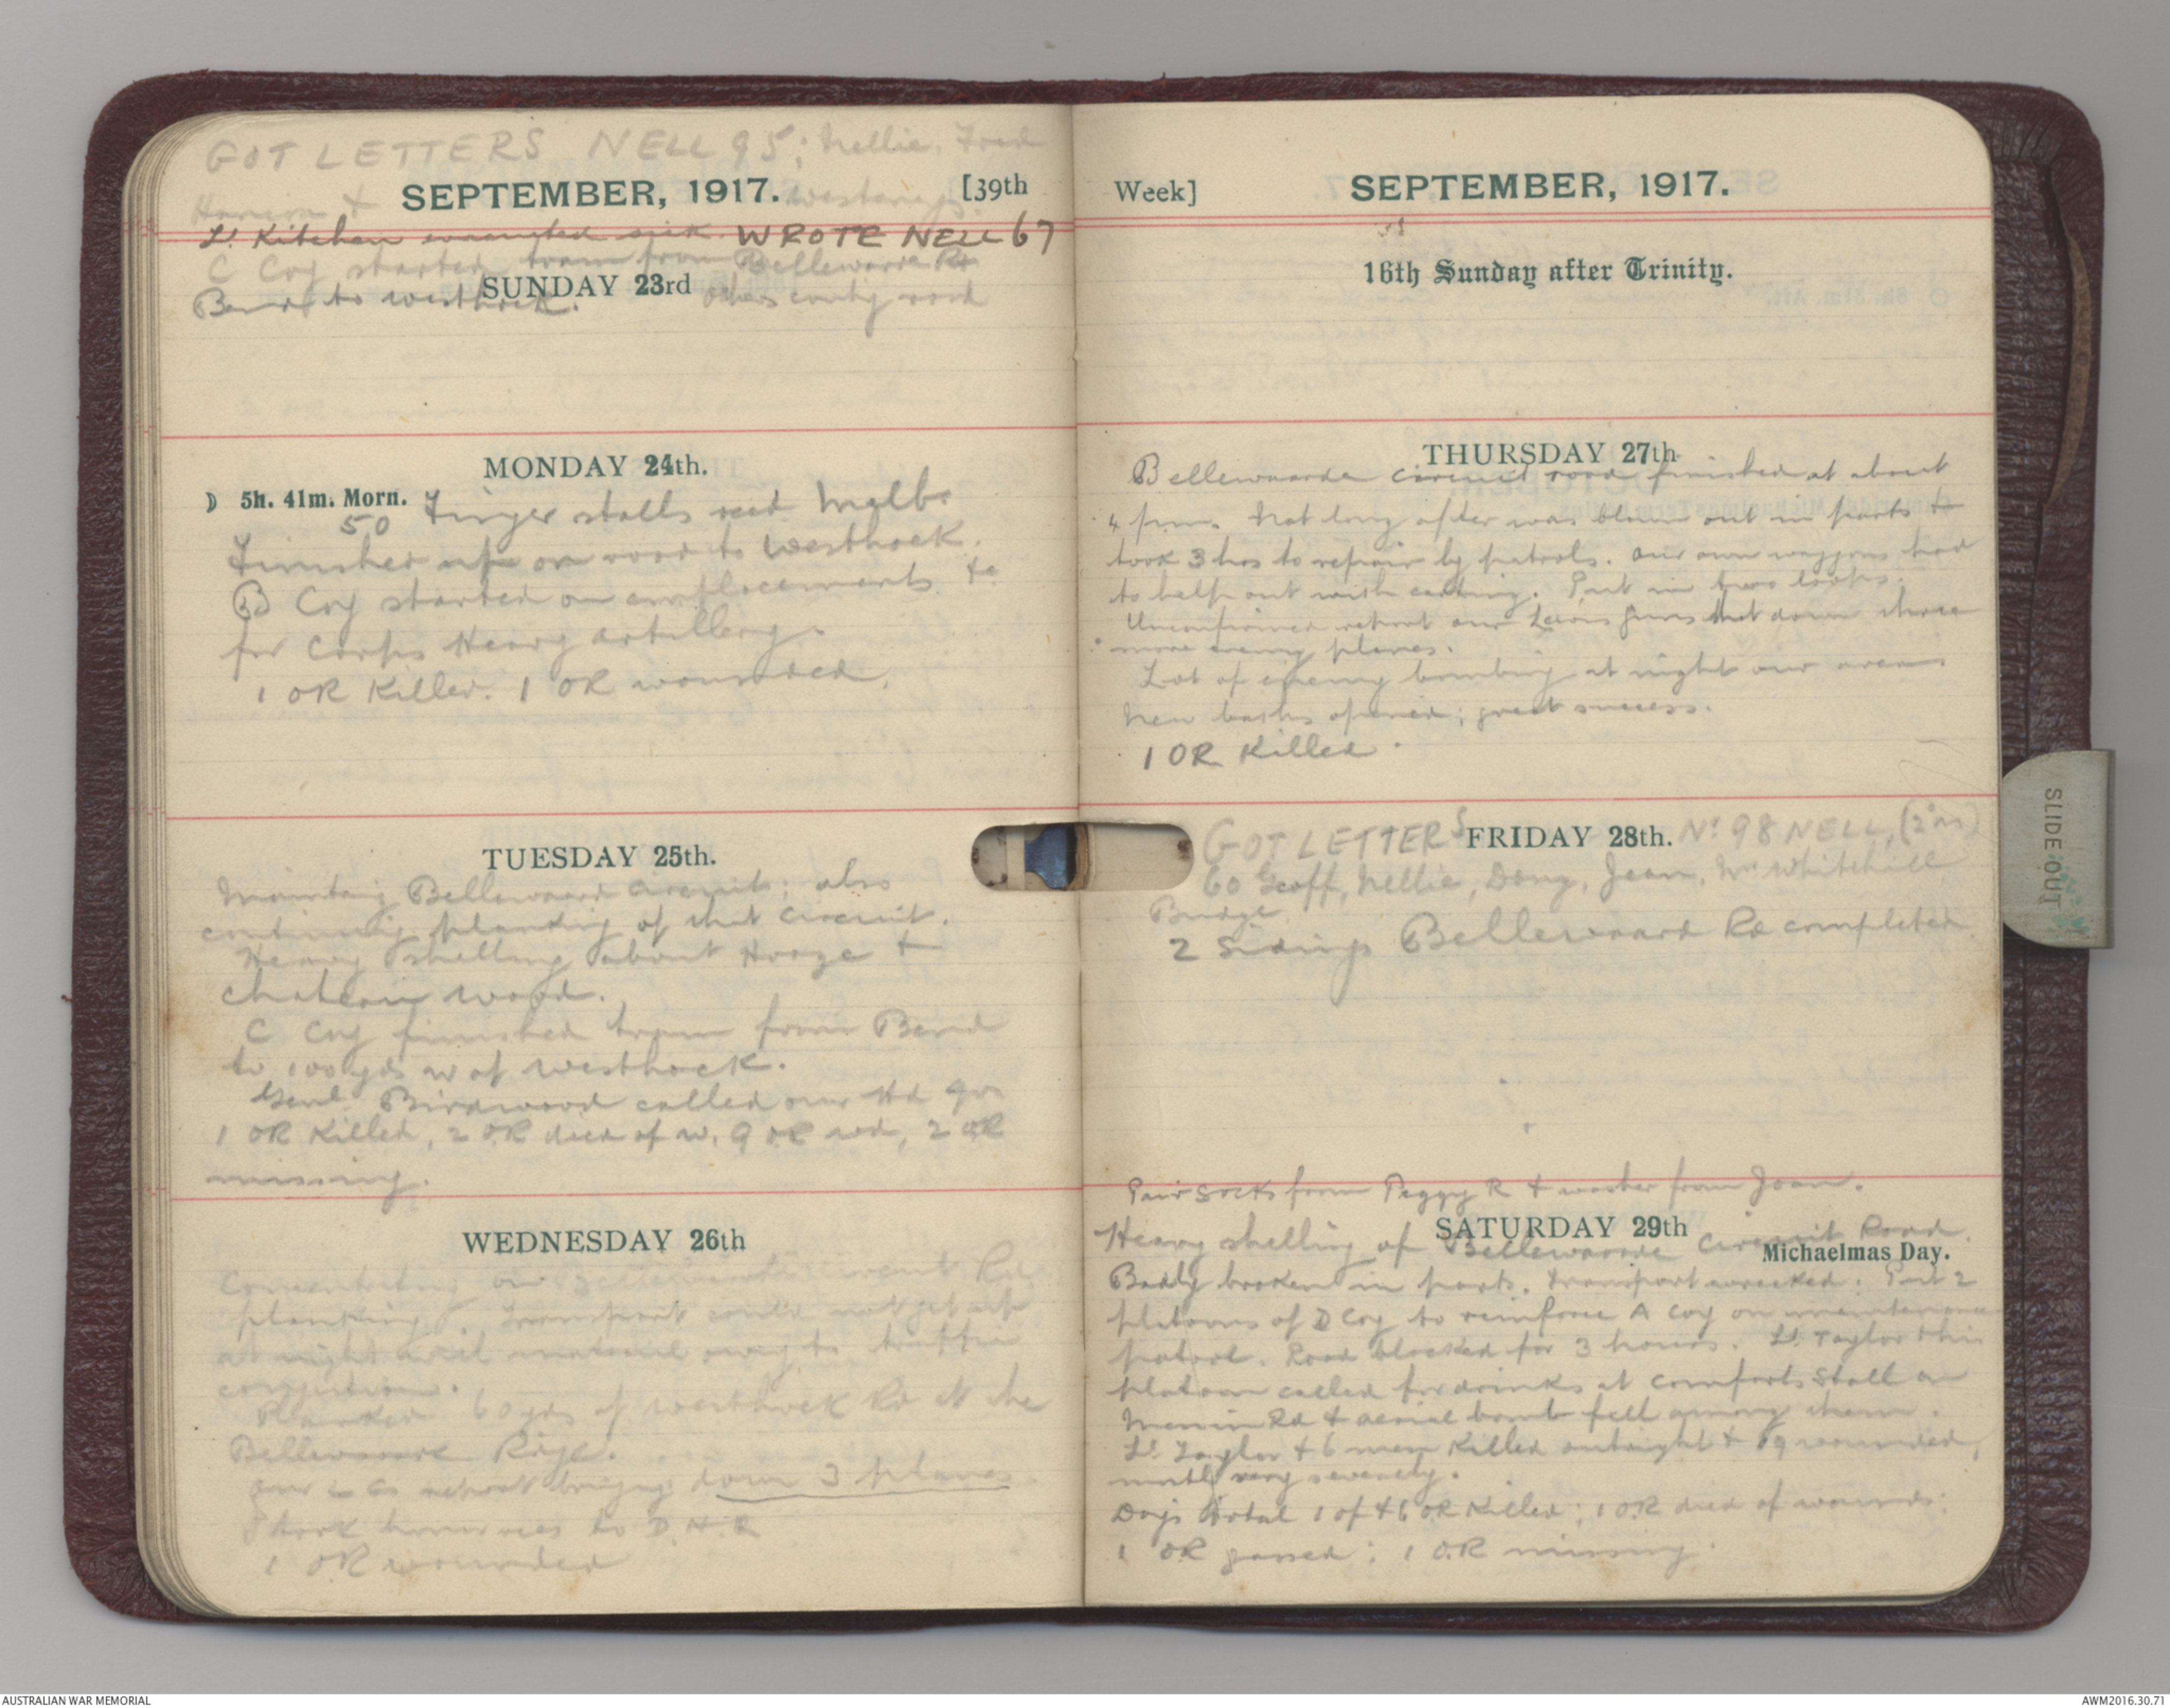 GOT LETTERS NELL 95; Nellie, Fred
SEPTEMBER, 1917. [39th
Harrison & Westerways.
Lt. Kitchen evacuated sick. WROTE NELL 67
C Coy started tram from Bellewarde Rd
SUNDAY 23rd
Bend to Westhoek. Others contg road
MONDAY 24th.
☽ 5h. 41m. Morn.
50 Finger stalls recd Melb.
Finished up on road to Westhoek.
B Coy started on emplacements &c
for Corps Heavy artillery.
1 OR Killed. 1 OR wounded.
TUESDAY 25th.
Maintaing Bellewaard Circuit; also
continuing planking of that circuit.
Heavy shelling about Hooge &
Chateau wood.
C Coy finished tram from Bend
to 100 yds W of Westhoek.
Genl. Birdwood called our Hd Qrs
1 OR Killed, 2 OR died of w. 9 OR wd, 2 OR
missing.
WEDNESDAY 26th
Concentrating on Bellewaarde circuit Rd
planking. Transport could not get up
at night with material owing to traffic
congestion.
Planked 60 yds of Westhoek Rd at the
Bellewaarde Ridge.
Our report bringing down 3 planes.
1 OR wounded
Week] SEPTEMBER, 1917.
16th Sunday after Trinity.
THURSDAY 27th
Bellewaarde circuit road finished at about
4 p.m. Not long after was blown out in parts &
took 3 hrs to repair by patrols. Our own waggons had
to help out with carting. Put in two loops.
Unconfirmed report our Lewis guns shot down three
more enemy planes.
Lot of enemy bombing at night our area
New baths opened; great success.
1 OR Killed.
GOT LETTERS FRIDAY 28th. No 98 NELL,
60 Geoff, Nellie, Doug, Jean, Mr Whitehill
Budge.
2 Sidings Bellewaard Rd completed
Pair socks from Peggy R & washer from Joan.
SATURDAY 29th
Heavy shelling of Bellewaarde Circuit Road.
Michaelmas Day.
Badly broken in parts. Transport wrecked. Put 2
platoons of D Coy to reinforce A Coy on maintenance
patrol. Road blocked for 3 hours. Lt. Taylor & his
platoon called for drinks at Comforts Stall on
Menin Rd & aerial bomb fell among them.
Lt. Taylor & 6 men Killed outright & 19 wounded,
mostly very severely.
Days total 1 of & 6 OR Killed; 1 OR died of wounds:
1 OR gassed: 1 OR missing.
SLIDE OUT
AUSTRALIAN WAR MEMORIAL
AWM2016.30.71